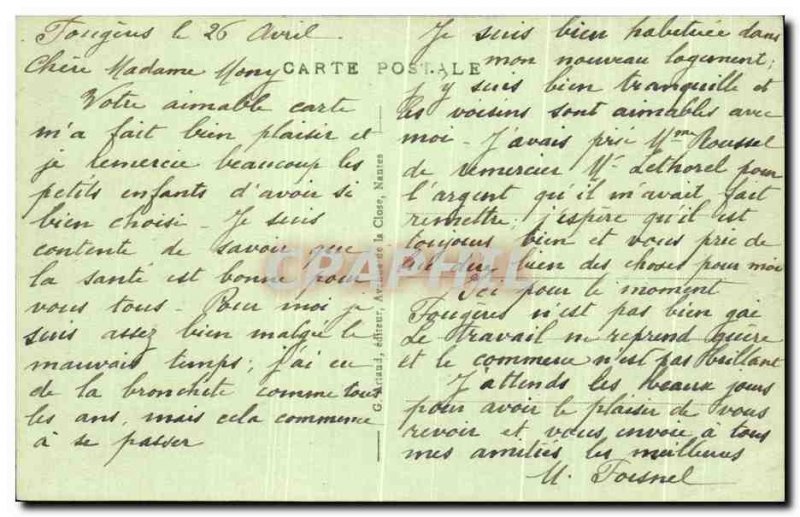 Fougères le 26 Avril.
Chère Madame Mony
CARTE POSTALE
Votre aimable carte
m'a fait bien plaisir et
je remercie beaucoup les
petits enfants d'avoir si
bien choisi - Je suis
contente de savoir que
la santé est bonne pour
vous tous - Pour moi je
suis assez bien malgré le
mauvais temps; j'ai eu
de la bronchite comme tous
les ans, mais cela commence
à se passer
G. Artaud, éditeur, Avenue de la Close, Nantes
Je suis bien habituée dans
mon nouveau logement;
j'y suis bien tranquille et
les voisins sont aimables avec
moi - J'avais prié Mme Roussel
de remercier Mr Lethorel pour
l'argent qu'il m'avait fait
remettre; j'espère qu'il est
toujours bien et vous prie de
lui dire bien des choses pour moi
Ici pour le moment
Fougères n'est pas bien gai
Le travail ne reprend guère
et le commerce n'est pas brillant
J'attends les beaux jours
pour avoir le plaisir de vous
revoir et vous envoie à tous
mes amitiés les meilleures
M. Foisnel
CPAPHIL